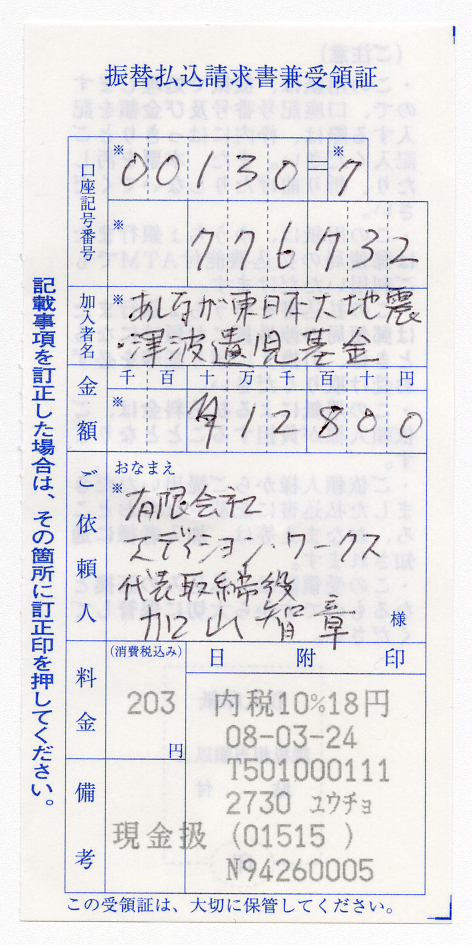 振替払込請求書兼受領証
口座記号番号
※00130=※7
※776732
加入者名
※あしなが東日本大地震
・津波遺児基金
金額
千百十万千百十円
※¥12800
ご依頼人
おなまえ
※有限会社
代表取締役
加山智章
様
料金
(消費税込み)
203
円
日附印
内税10%18円
08-03-24
T501000111
2730 ユウチョ
備考
現金扱 (01515 )
N94260005
記載事項を訂正した場合は、その箇所に訂正印を押してください。
この受領証は、大切に保管してください。